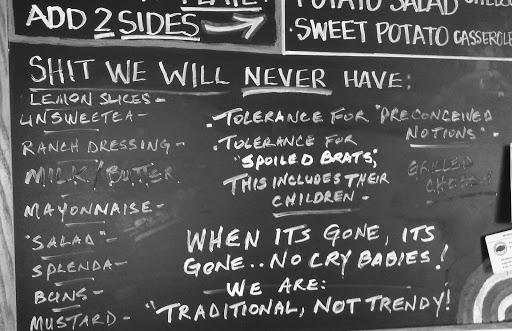 PLATE
ADD 2 SIDES
POTATO SALAD
· SWEET POTATO CASSEROLE
SHIT WE WILL NEVER HAVE:
LEMON SLICES -
UNSWEETEA -
RANCH DRESSING -
MILK/BUTTER
MAYONNAISE -
"SALAD" -
SPLENDA -
BUNS -
MUSTARD -
· TOLERANCE FOR "PRECONCEIVED
NOTIONS" -
· TOLERANCE FOR
"SPOILED BRATS,"
THIS INCLUDES THEIR
CHILDREN -
GRILLED
CHEESE
WHEN ITS GONE, ITS
GONE.. NO CRY BABIES!
WE ARE:
"TRADITIONAL, NOT TRENDY!